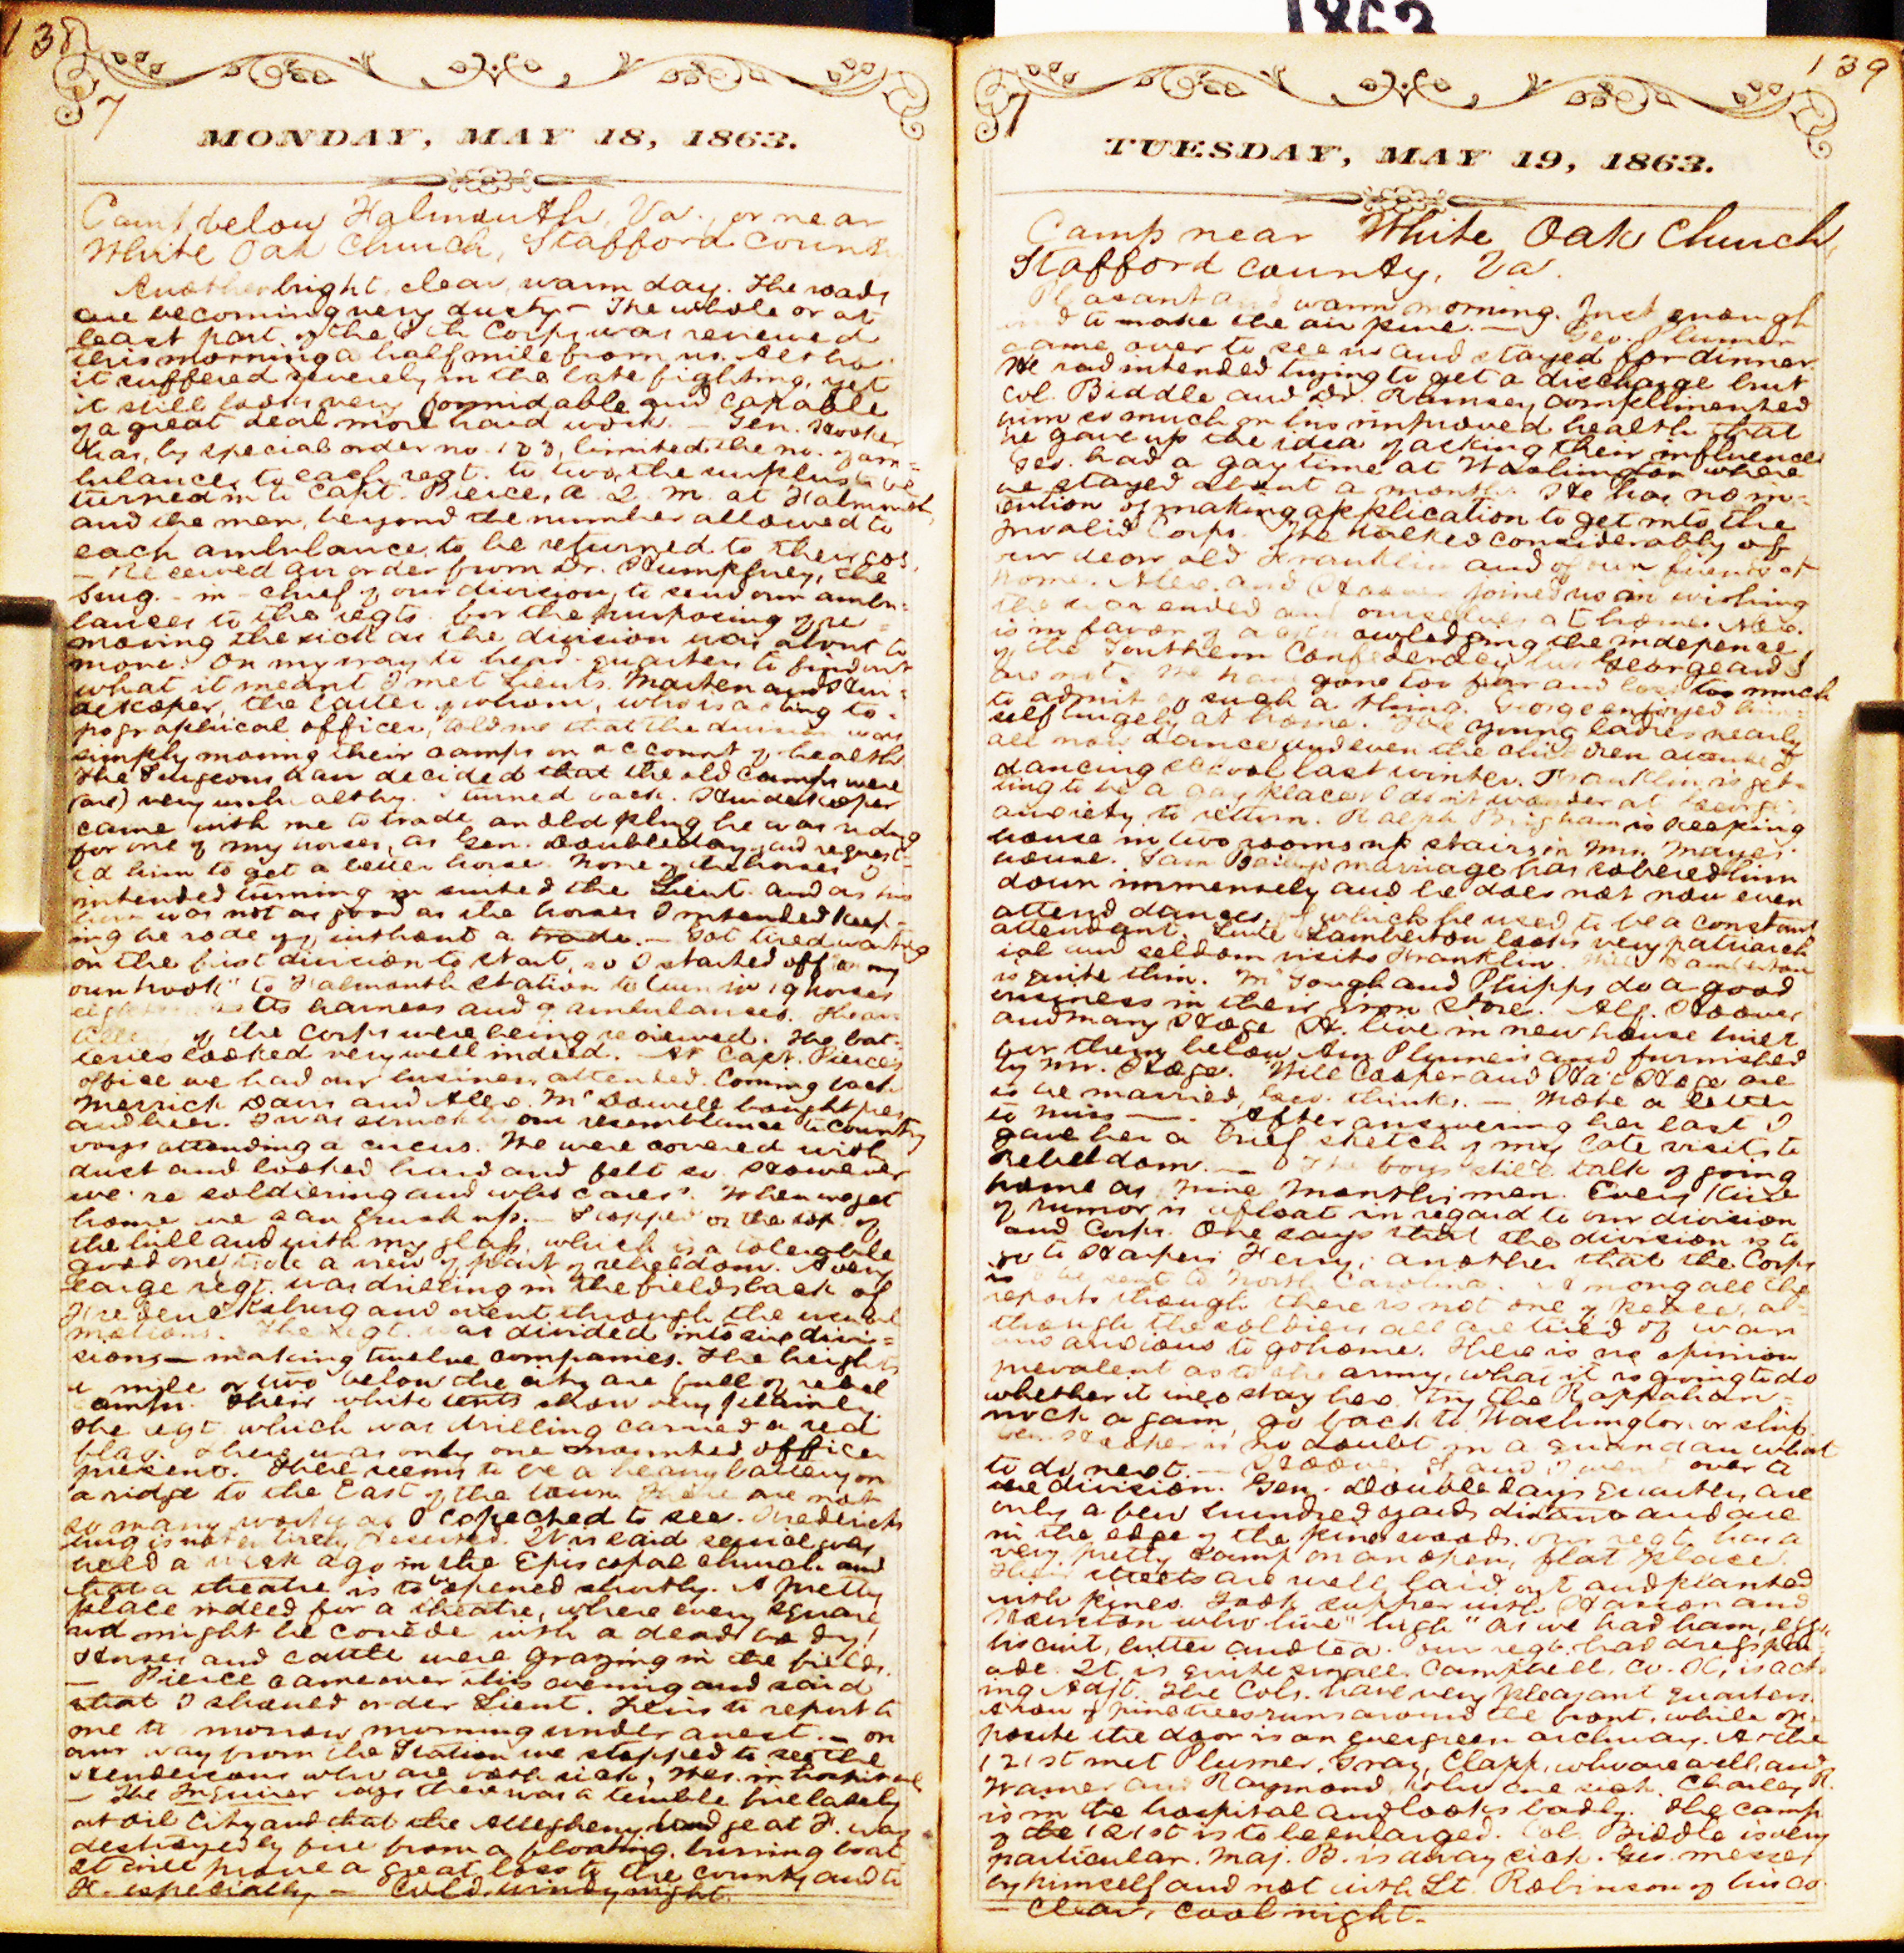 1863
138
7
MONDAY, MAY 18, 1863.
Camp below Falmouth, Va., or near
White Oak Church, Stafford County
Another bright, clear, warm day. The roads
are becoming very dusty — The whole or at
least part of the 6th Corps was reviewed
this morning a half mile from us. Altho'
it suffered severely in the late fighting, yet
it still looks very formidable and capable
of a great deal more hard work. — Gen. Hooker
has, by special order no. 133, limited the no. of am=
bulances to each regt. to two, the surplus to be
turned in to Capt. Pierce, A. Q. M. at Falmouth,
and the men, beyond the number allowed to
each ambulance, to be returned to their cos.
— Received an order from Dr. Humphrey, the
Surg.-in-chief of our division, to send our ambu=
lances to the regts. for the purposing of re=
moving the sick as the division was about to
move. On my way to head-quarters to find out
what it meant I met Lieuts. Marten and Hui=
dekoper, the latter of whom, who is acting to=
pographical officer, told me that the division was
simply moving their camps on account of health
The Surgeons have decided that the old camps were
(are) very unhealthy. I turned back. Huidekoper
came with me to trade an old plug he was riding
for one of my horses, as Gen. Doubleday had request=
ed him to get a better horse. None of the horses I
intended turning in suited the Lieut. and as his
horse was not as good as the horses I intended keep=
ing he rode off without a trade. — Got tired waiting
on the first division to start, so I started off "on my
own hook" to Falmouth Station to turn in 19 horses
sets harness and 9 ambulances. The ar=
tillery of the Corps were being reviewed. The bat=
teries looked very well indeed. — At Capt. Pierce's
office we had our business attended. Coming back
Merrick Davis and Alex. McDowell bought pies
and beer. I was struck by our resemblance to country
boys attending a circus. We were covered with
dust and looked hard and felt so. However
we're soldiering and who cares? When we get
home we can brush up. — Stopped on the top of
the hill and with my glass, which is a tolerable
good one, took a view of part of rebeldom. A very
large regt. was drilling in the fields back of
Fredericksburg and went through the usual
motions. The regt. was divided into six divi=
sions — making twelve companies. The heights
a mile or two below the city are full of rebel
camps. Their white tents show very plainly.
The regt. which was drilling carried a red
flag. There was only one mounted officer
present. There seems to be a heavy battery on
a ridge to the East of the town. There are not
so many works as I expected to see. Fredericks
burg is not entirely deserted. It is said service was
held a week ago in the Episcopal church and
that a theatre is to be opened shortly. A pretty
place indeed for a theatre, where every square
rod might be covered with a dead body!
Horses and cattle were grazing in the fields.
— Pierce came over this evening and said
that I should order Lieut. to report to
me to-morrow morning under arrest. — On
our way from the Station we stopped to see the
Hendersons who are both sick, Wes. in hospital
— The Inquirer says there was a terrible fire lately
at Oil City and that the Allegheny bridge at F. was
destroyed by fire from a floating, burning boat
It will prove a great loss to the county and to
F. especially — Cold, windy night.
139
7
TUESDAY, MAY 19, 1863.
Camp near White Oak Church,
Stafford County, Va.
Pleasant and warm morning. Just enough
wind to make the air pure. — Geo. Plumer
came over to see us and stayed for dinner.
He had intended trying to get a discharge but
Col. Biddle and Dr. Ramsey complimented
him so much on his improved health that
he gave up the idea of asking their influence
Geo. had a gay time at Washington where
he stayed about a month. He has no in=
tention of making application to get into the
Invalid Corps. We talked considerably of
our dear old Franklin and of our friends at
home. Alex. and Hoover joined us in wishing
the war ended and ourselves at home. Alex.
is in favor of acknowledging the indepence
of the Southern Confederacy but George and I
are not. We have gone too far and lost too much
to admit of such a thing. George enjoyed him=
self hugely at home. The young ladies nearly
all now dance and even the children attended
dancing school last winter. Franklin is get=
ting to be a gay place. I don't wonder at George's
anxiety to return. Ralph Brigham is keeping
house in two rooms up stairs in Mrs. Mayes'
house. Sam Bailey's marriage has sobered him
down immensely and he does not now even
attend dances, of which he used to be a constant
attendant. Lute Lamberton looks very patriarch
ial and seldom visits Franklin. Will Lamberton
is quite thin. McGough and Phipps do a good
business in their iron store. Alf. Hoover
and Mary Hoge H. live in new house built
for them below Arn Plumer's and furnished
by Mr. Hoge. Will Cooper and Hat Hoge are
to be married, Geo. thinks. — Wrote a letter
to Miss —. After answering her last I
gave her a brief sketch of my late visits to
Rebeldom. — The boys still talk of going
home as nine months men. Every kind
of rumor is afloat in regard to our division
and Corps. One says that the division is to
go to Harpers Ferry, another that the Corps
is to be sent to North Carolina. Among all the
reports though there is not one of peace, al=
though the soldiers all are tired of war
and anxious to go home. There is no opinion
prevalent as to the army, what it is going to do
whether it will stay here, try the Rappahan=
nock again, go back to Washington or ship.
Gen. Hooker is no doubt in a quandau what
to do next. — Hoover and I went over to
the division. Gen. Doubleday's quarters are
only a few hundred yards distant and are
in the edge of the pine woods. Our regt. has a
very pretty camp on an open, flat place.
Their streets are well laid out and planted
with pines. Took supper with and
who live "high" as we had ham, eggs
biscuit, butter and tea. Our regt. had dress par=
ade. It is quite small. Campbell, Co. , is act=
ing Adjt. The Cols. have very pleasant quarters.
A row of pine trees runs around the front, while op=
posite the door is an evergreen archway. At the
121st met Plumer, Gray, Clapp, who are well, and
Warner and Raymond, who are sick. Charley R.
is in the hospital and looks badly. The camp
of the 121st is to be enlarged. Col. Biddle is very
particular. Maj. B. is away sick. Geo. messes
by himself and not with Lt. Robinson of his co.
— Clear, cool night.